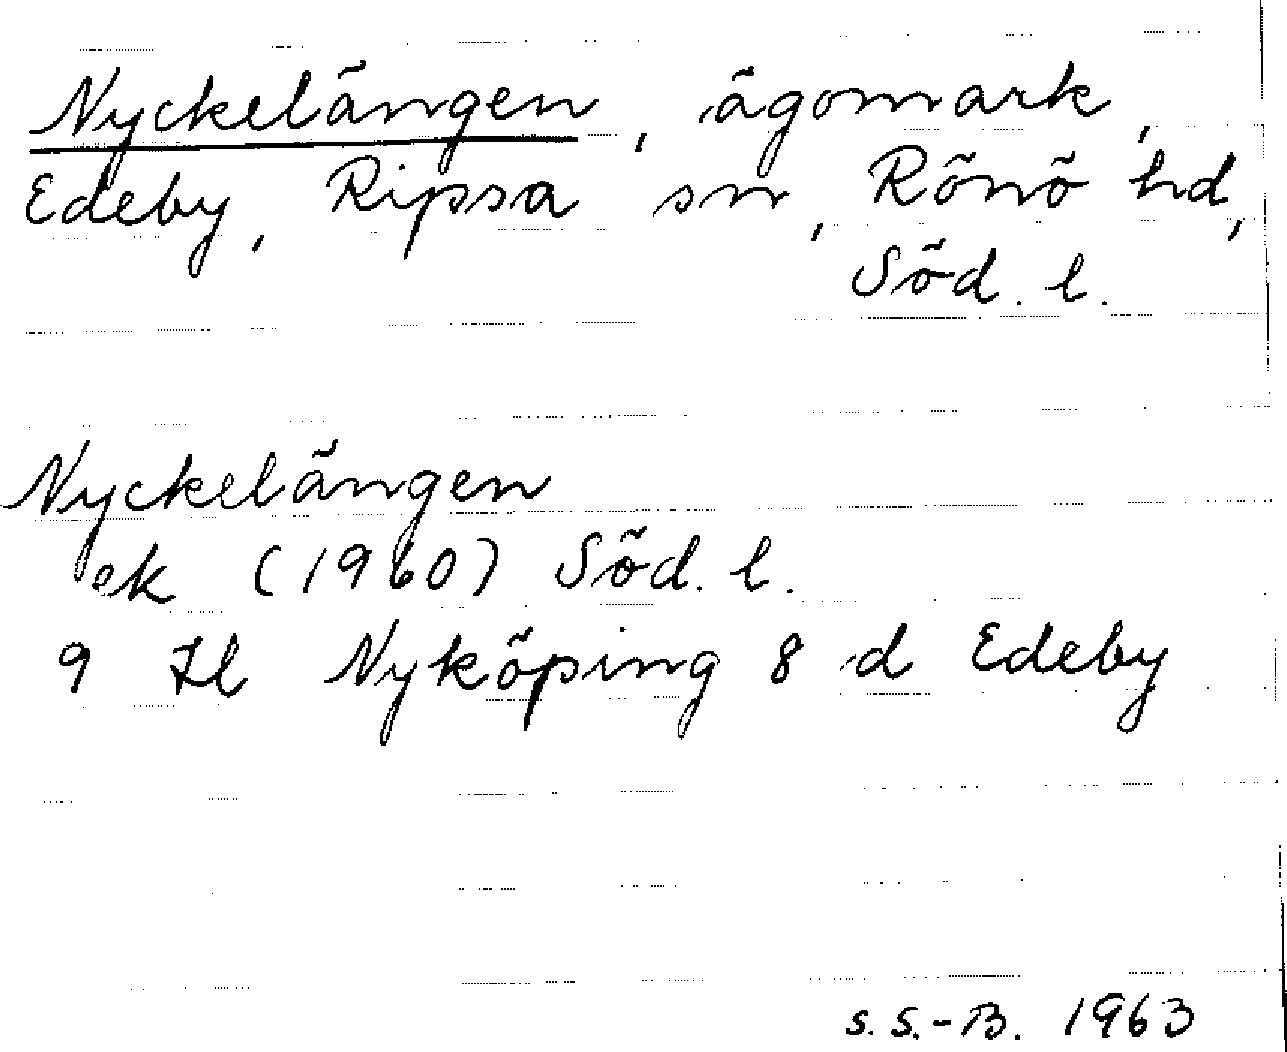 Nyckelängen, ägomark,
Edeby, Ripsa sn, Rönö hd,
Söd. l.
Nyckelängen
ek (1960) Söd. l.
9 Hl Nyköping 8 d Edeby
S. S.-B. 1963